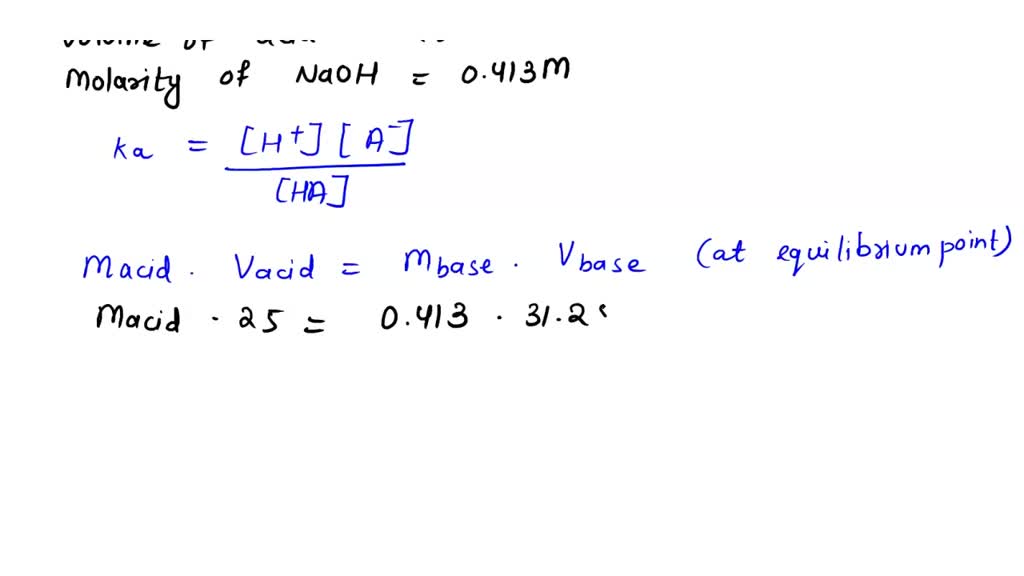 Molarity of NaOH = 0.413M
ka = [H+][A-]
[HA]
Macid . Vacid = Mbase . Vbase (at equilibrium point)
Macid . 25 = 0.413 . 31.2